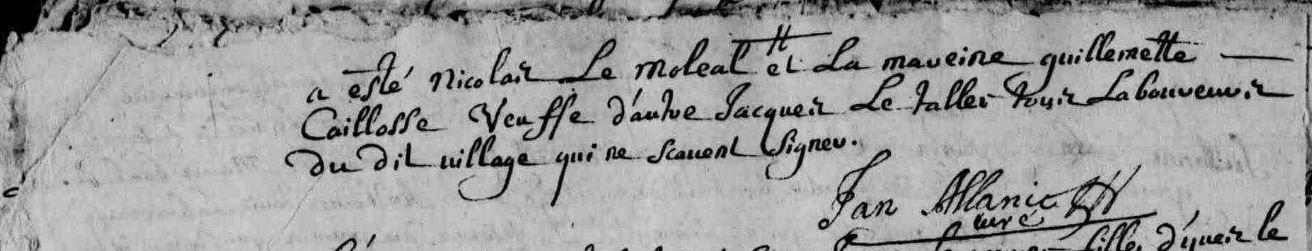 a esté Nicolas Le moleal et La maveine guillemette
Caillosse Veuffe d'autre Jacques Le taller tous Laboureurs
du dit village qui ne scavent signer.
Jan Allanic
curé
fille d'yves le